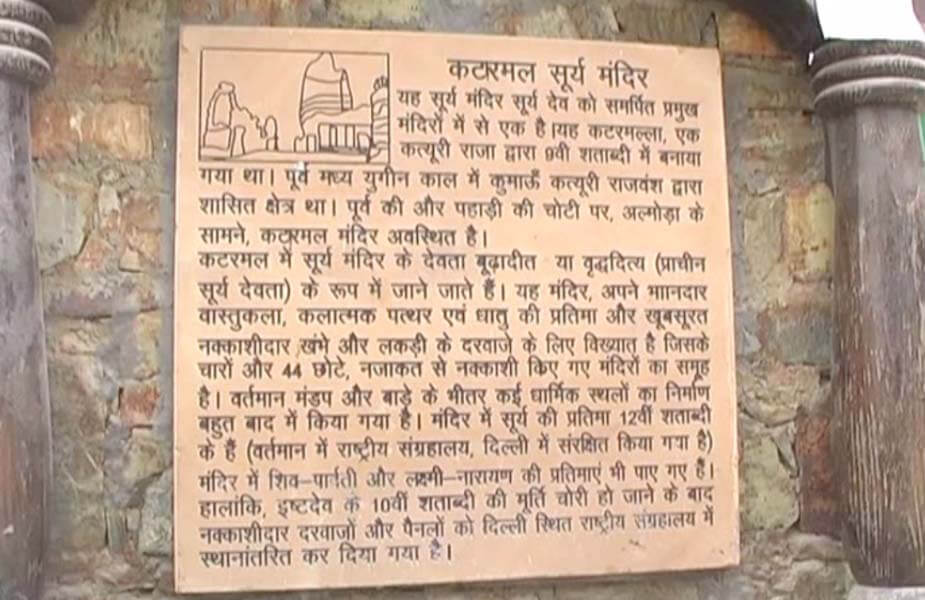 कटारमल सूर्य मंदिर
यह सूर्य मंदिर सूर्य देव को समर्पित प्रमुख
मंदिरों में से एक है।यह कटरमल्ला, एक
कत्यूरी राजा द्वारा 9वी शताब्दी में बनाया
गया था। पूर्व मध्य युगीन काल में कुमाऊँ कत्यूरी राजवंश द्वारा
शासित क्षेत्र था। पूर्व की और पहाड़ी की चोटी पर, अल्मोड़ा के
सामने, कटारमल मंदिर अवस्थित है।
कटरमल में सूर्य मंदिर के देवता बूढ़ादीत या वृद्धदित्य (प्राचीन
सूर्य देवता) के रूप में जाने जाते हैं। यह मंदिर, अपने भाानदार
वास्तुकला, कलात्मक पत्थर एवं धातु की प्रतिमा और खूबसूरत
नक्काशीदार खंभे और लकड़ी के दरवाजे के लिए विख्यात है जिसके
चारों और 44 छोटे, नजाकत से नक्काशी किए गए मंदिरों का समूह
है। वर्तमान मंडप और बाड़े के भीतर कई धार्मिक स्थलों का निर्माण
बहुत बाद में किया गया है। मंदिर में सूर्य की प्रतिमा 12वीं शताब्दी
के हैं (वर्तमान में राष्ट्रीय संग्रहालय, दिल्ली में संरक्षित किया गया है)
मंदिर में शिव–पार्वती और लक्ष्मी–नारायण की प्रतिमाएं भी पाए गए हैं।
हालांकि, इष्टदेव के 10वीं शताब्दी की मूर्ति चोरी हो जाने के बाद
नक्काशीदार दरवाजों और पैनलों को दिल्ली स्थित राष्ट्रीय संग्रहालय में
स्थानांतरित कर दिया गया है।